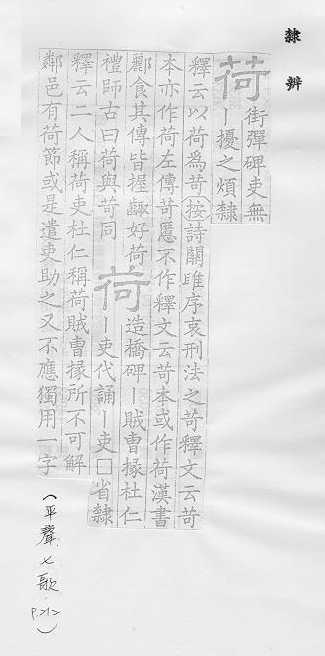 隸辨
荷
街彈碑吏無
丨擾之煩隸
釋云以荷為苛按詩關雎序哀刑法之苛釋文云苛
本亦作荷左傳苛慝不作釋文云苛本或作荷漢書
酈食其傳皆握齱好荷
禮師古曰荷與苛同
荷
造橋碑丨賊曹掾杜仁
丨吏代誦丨吏□省隸
釋云二人稱荷吏杜仁稱荷賊曹掾所不可解
鄰邑有荷節或是遣吏助之又不應獨用一字
(平聲.七歌. P.212)